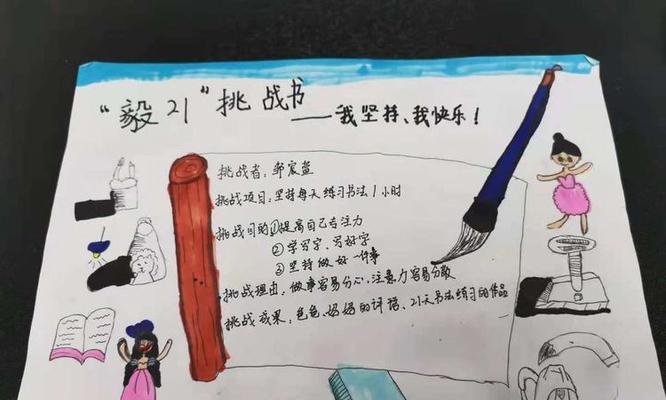 “毅21”挑战书
——我坚持、我快乐！
挑战者：邹宸萱
挑战项目：坚持每天练习书法1小时
挑战目的①提高自己专注力
②学写字、写好字
③坚持做好一件事
挑战理由：做事容易分心、注意力容易分散
挑战成果：爸爸、妈妈的评语、21天书法练习的作品